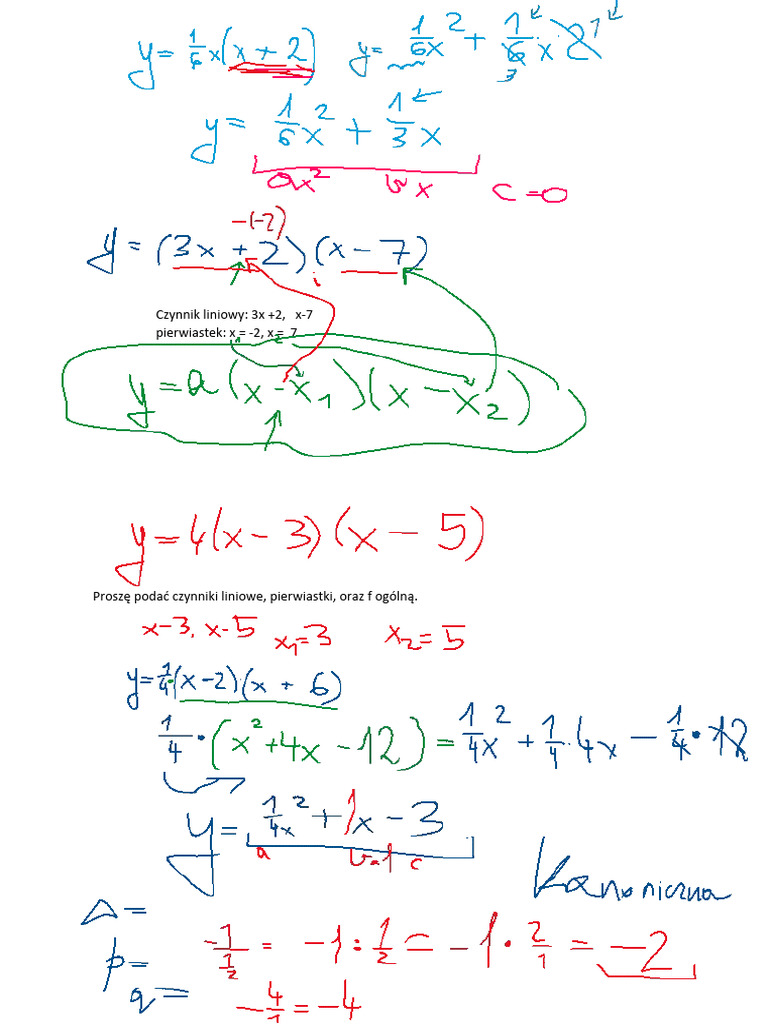 y = 1/6 x(x + 2)   y = 1/6 x² + 1/6 x · 2 1
3
y = 1/6 x² + 1/3 x
ax²   bx   c = 0
-(-2)
y = (3x + 2)(x - 7)
Czynnik liniowy: 3x +2,   x-7
pierwiastek: x = -2, x =  7
1   2
y = a(x - x₁)(x - x₂)
y = 4(x - 3)(x - 5)
Proszę podać czynniki liniowe, pierwiastki, oraz f ogólną.
x-3, x-5   x₁=3   x₂=5
y = 1/4 (x-2)·(x + 6)
1/4 · (x² + 4x - 12) = 1/4 x² + 1/4 · 4x - 1/4 · 12
y = 1/4 x² + 1x - 3
a   b=1   c
Kanoniczna
Δ =
-1/(1/2) = -1 : 1/2 = -1 · 2/1 = -2
p =
q =   -4/1 = -4